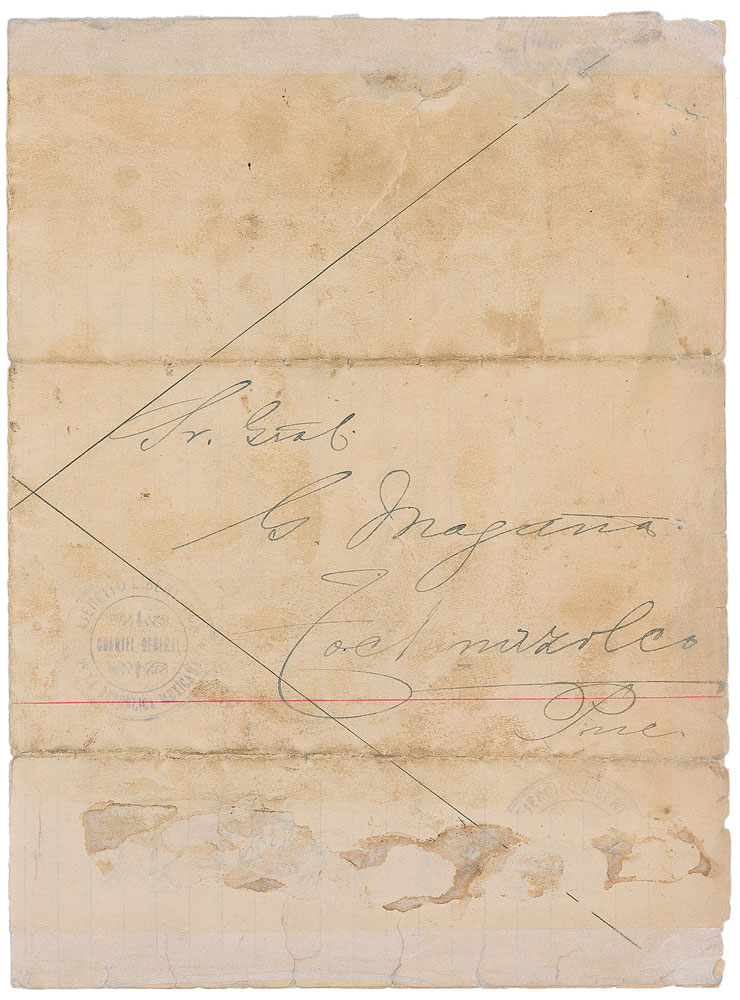 Sr. Gral.
G. Magaña.
Tochimizolco
Pue.
EJERCITO LIBERTADOR
CUARTEL GENERAL
REPUBLICA MEXICANA
EJERCITO LIBER